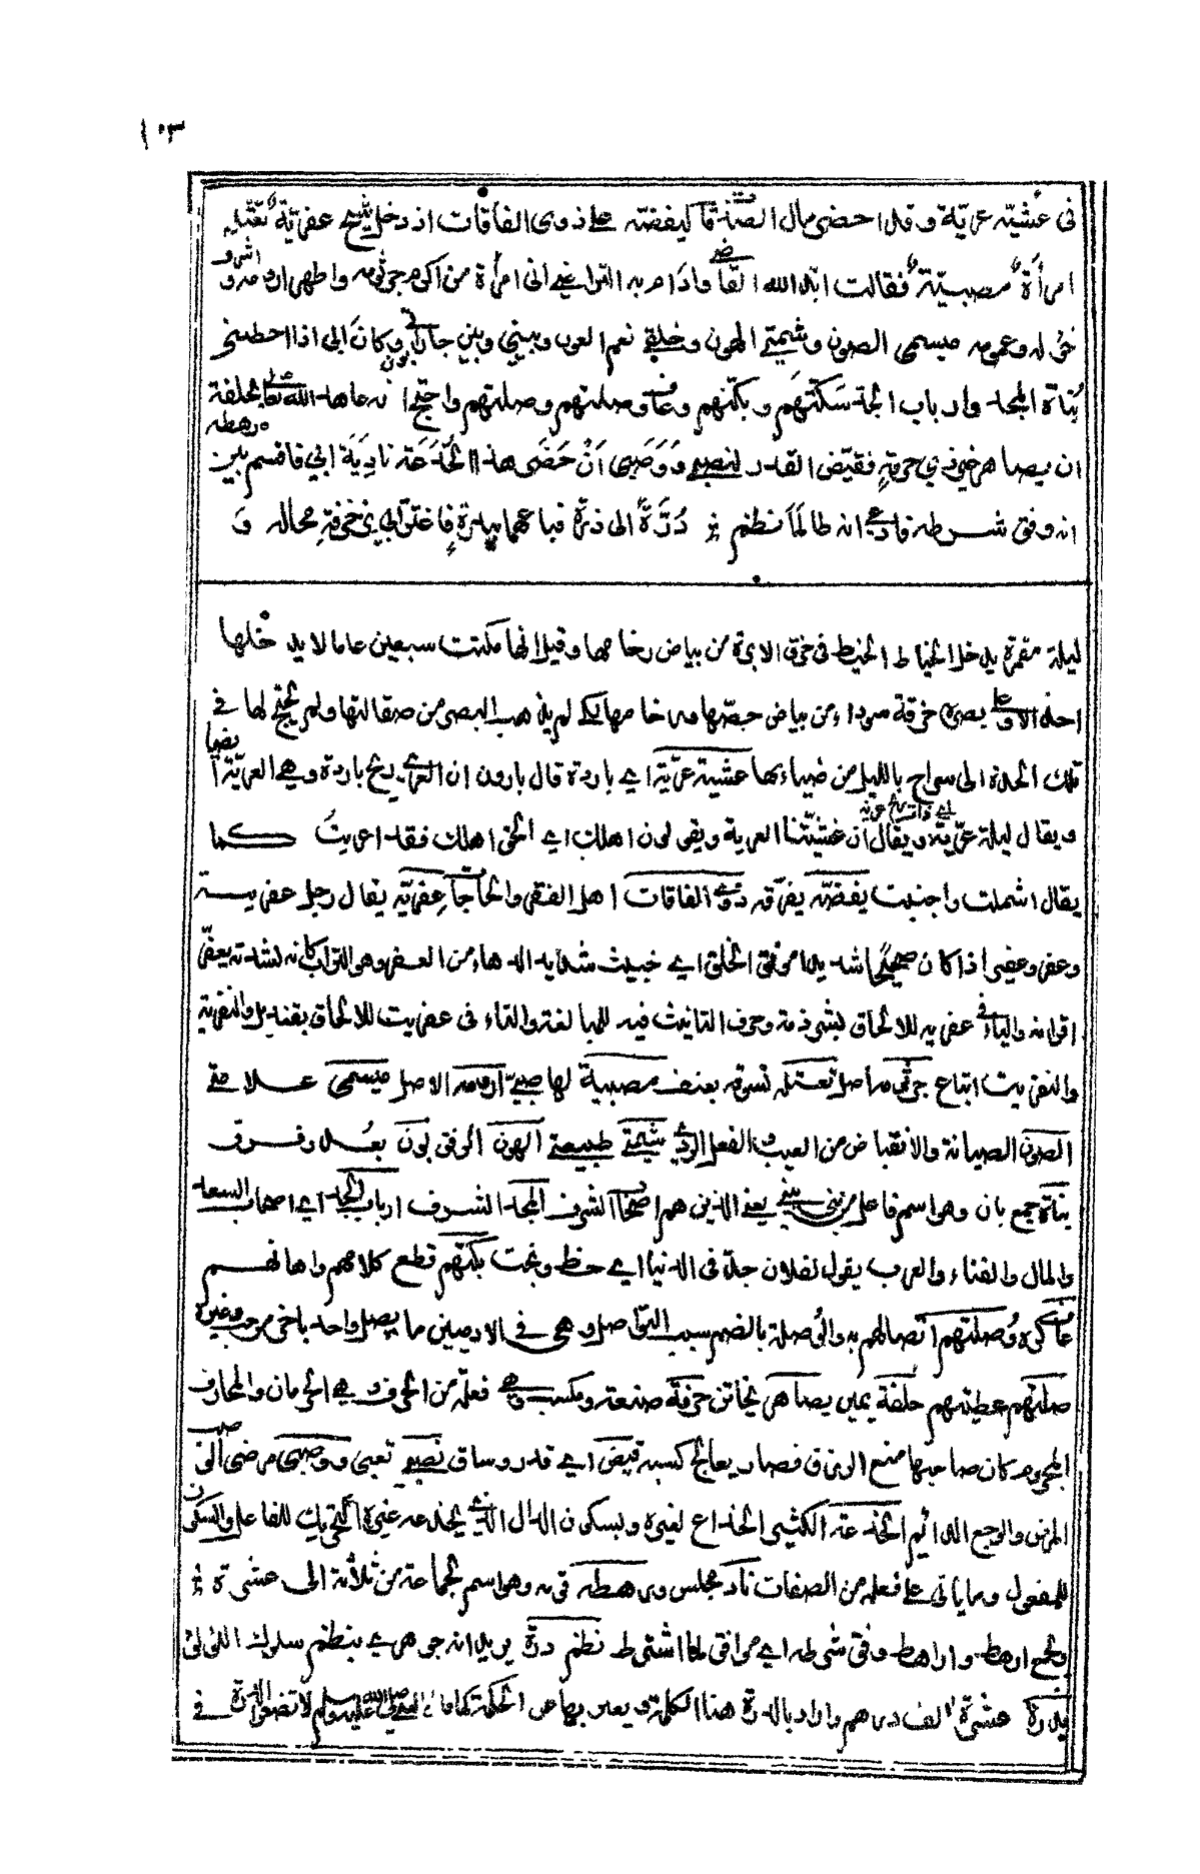 ١٠٣
فى عشية عرية وقد احضر مال الصدقات ليفضه على ذوى الفاقات اذ دخل شيخ عفرية تعتله
امرأة مصبية فقالت ايد الله القاضى وادام به التراضى انى امرأة من اكرم جرثومة واطهر ارومة واشرف
خؤلة وعمومة ميسمى الصون وشيمتى الهون وخلقى نعم العون وبينى وبين جاراتى بون وكان ابى اذا خطبنى
بناة المجد وارباب الجد سكتهم وبكتهم وعاف وصلتهم وصلتهم واحتج انه عاهد الله تعالى بحلفة
ان يصاهر غير ذى حرفة فقيض القدر لنصبى ووصبى ان حضر هذا الخدعة نادى ابى فاقسم بين رهطه
انه وفق شرطه فادعى انه طالما نظم درة الى درة فباعهما ببدرة فاغتر ابى بزخرفة محاله و
ليلة مقمرة يدخل الخياط الخيط فى خرق الابرة من بياض رخامها وقيل انها مكثت سبعين عاما لا يدخلها
احد الا وعلى بصره خرقة سوداء من بياض جصها ورخامها لكى لم يذهب البصر من صقالتها ولم يحتج لها فى
تلك المدة الى سراج بالليل من ضيائها عشية عرية اى باردة قال بارون ان العرى ريح باردة وهى العرية ايضا
ويقال ليلة عرية اى ذات ريح عرية ويقال ان عشيتنا العرية ويقولون اهلك اى الحق اهلك فقد اعريت كما
يقال اشملت واجنبت يفضه يفرقه ذوى الفاقات اهل الفقر والحاجات عفرية يقال رجل عفرية
وعفر وعفرى اذا كان صحيحا شديدا موثق الخلق اى خبيث شديد الدهاء من العفر وهو التراب كانه لشدته يعفر
اقرانه والياء فى عفرية للالحاق بشرذمة وحرف التانيث فيه للمبالغة والتاء فى عفريت للالحاق بقنديل والنفرية
والنفريت اتباع جرثومة اصل تعتله تسوقه بعنف مصبية لها صبى ارومة الاصل ميسمى علامتى
الصون الصيانة والانقباض من العيب والفعل الردى شيمتى طبيعتى الهون الرفق بون بعد وفرق
بناة جمع بان وهو اسم فاعل من بنى يبنى يعنى الذين هم اصحاب الشرف المجد الشرف ارباب الجد اى اصحاب السعد
والمال والغناء والعرب يقول لفلان جد فى الدنيا اى حظ وبخت بكتهم قطع كلامهم واهانهم
عاف كره وصلتهم اتصالهم به والوصلة بالضم سبب التواصل وهى فى الادميين ما يصل واحد باخر من حب وغيره
صلتهم عطيتهم حلفة يمين يصاهر يخاتن حرفة صنعة ومكسب وهى فعلة من الحرف وهى الحرمان والمحارف
المحروم كان صاحبها منع الرزق فصار يعالج كسبه قيض اى قدر وساق نصبى تعبى ووصبى مرضى الوصب
المرض والوجع الدائم الخدعة الكثير الخداع لغيره وبسكون الدال الذى يخدعه غيره التحريك للفاعل والسكون
للمفعول وما ياتى على فعلة من الصفات ناد مجلس ورهطه قومه وهو اسم لجماعة من ثلاثة الى عشرة
والجمع ارهط واراهط وفق شرطه اى موافق لما اشترط نظم درة يريد انه جوهرى ينظم سلوك اللؤلؤ
بدرة عشرة الف درهم واراد بالدرة هنا الكلمة ويعبر بها عن الحكمة كما قال النبى صلى الله عليه وسلم لا تضعوا الدرة فى